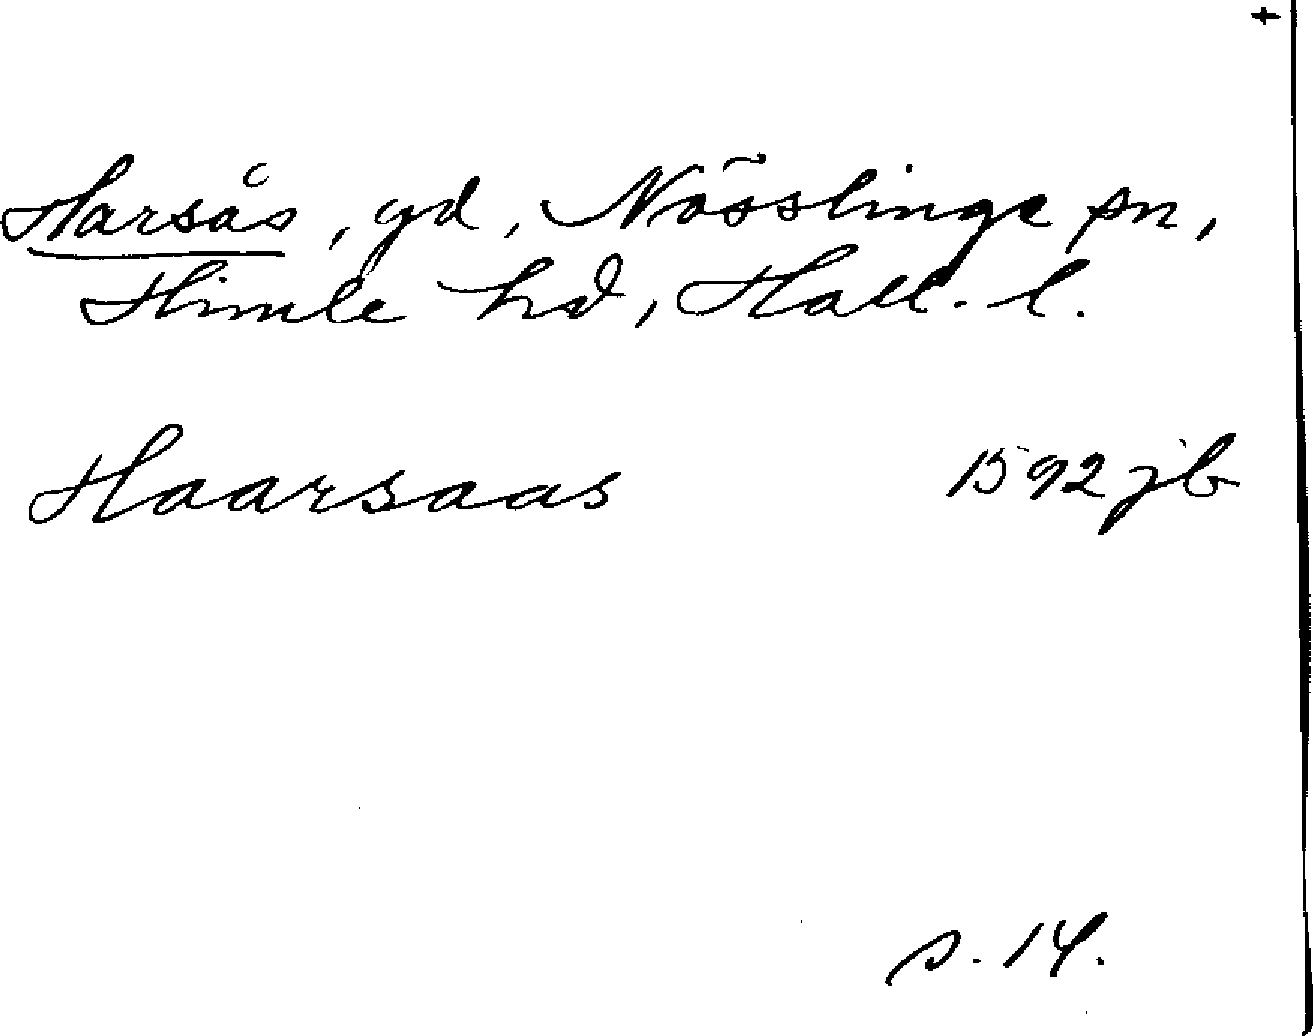 +
Harsås, gd, Nösslinge sn,
Himle hd, Hall. l.
Haarsaas 1592 jb
s. 14.